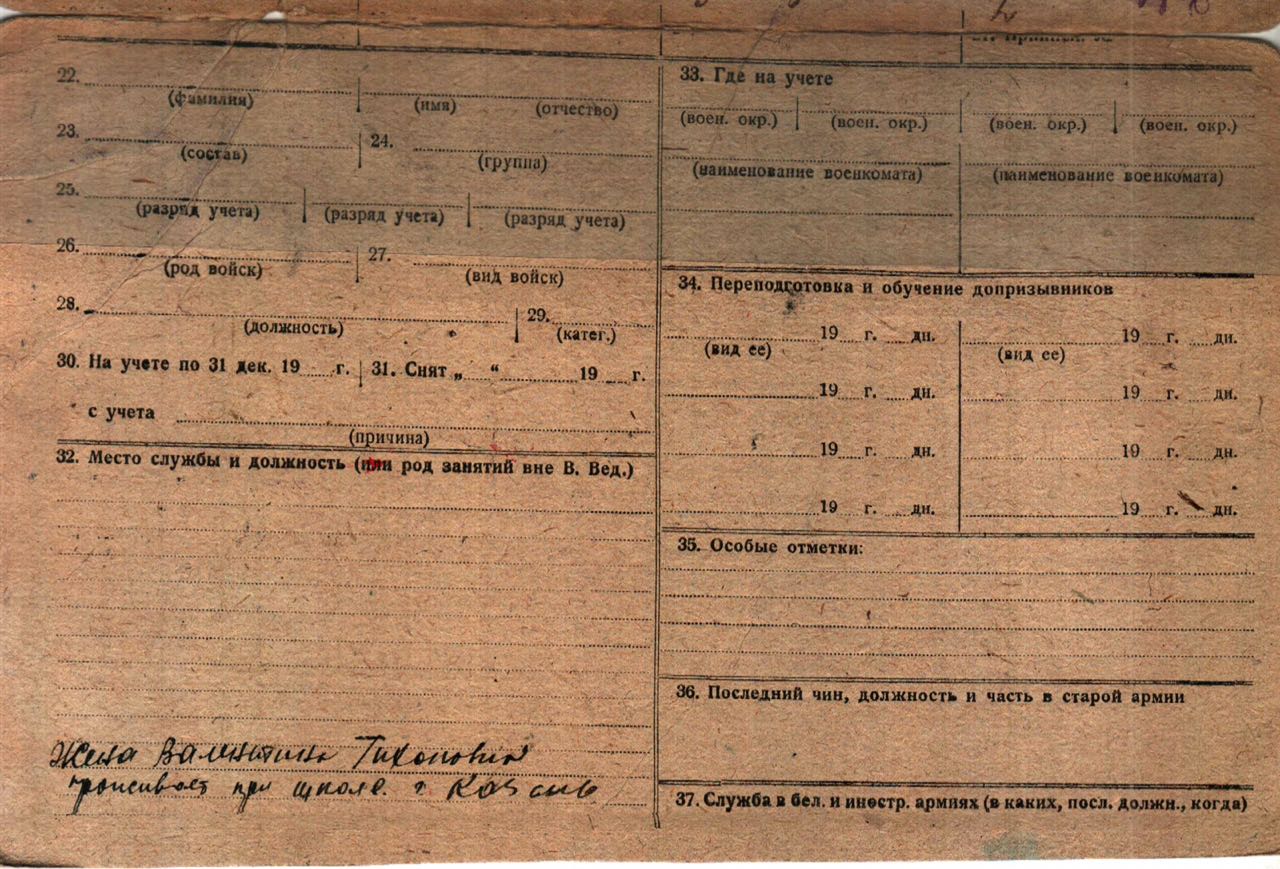 22.
(фамилия) (имя) (отчество)
23. 24.
(состав) (группа)
25.
(разряд учета) (разряд учета) (разряд учета)
26. 27.
(род войск) (вид войск)
28. 29.
(должность) (катег.)
30. На учете по 31 дек. 19 г. 31. Снят „ “ 19 г.
с учета
(причина)
32. Место службы и должность (или род занятий вне В. Вед.)
Жена Валентина Тихоновна
проживает при школе г. Казань
33. Где на учете
(воен. окр.) (воен. окр.) (воен. окр.) (воен. окр.)
(наименование военкомата) (наименование военкомата)
34. Переподготовка и обучение допризывников
19 г. дн. 19 г. дн.
(вид ее) (вид ее)
19 г. дн. 19 г. дн.
19 г. дн. 19 г. дн.
19 г. дн. 19 г. дн.
35. Особые отметки:
36. Последний чин, должность и часть в старой армии
37. Служба в бел. и иностр. армиях (в каких, посл. должн., когда)